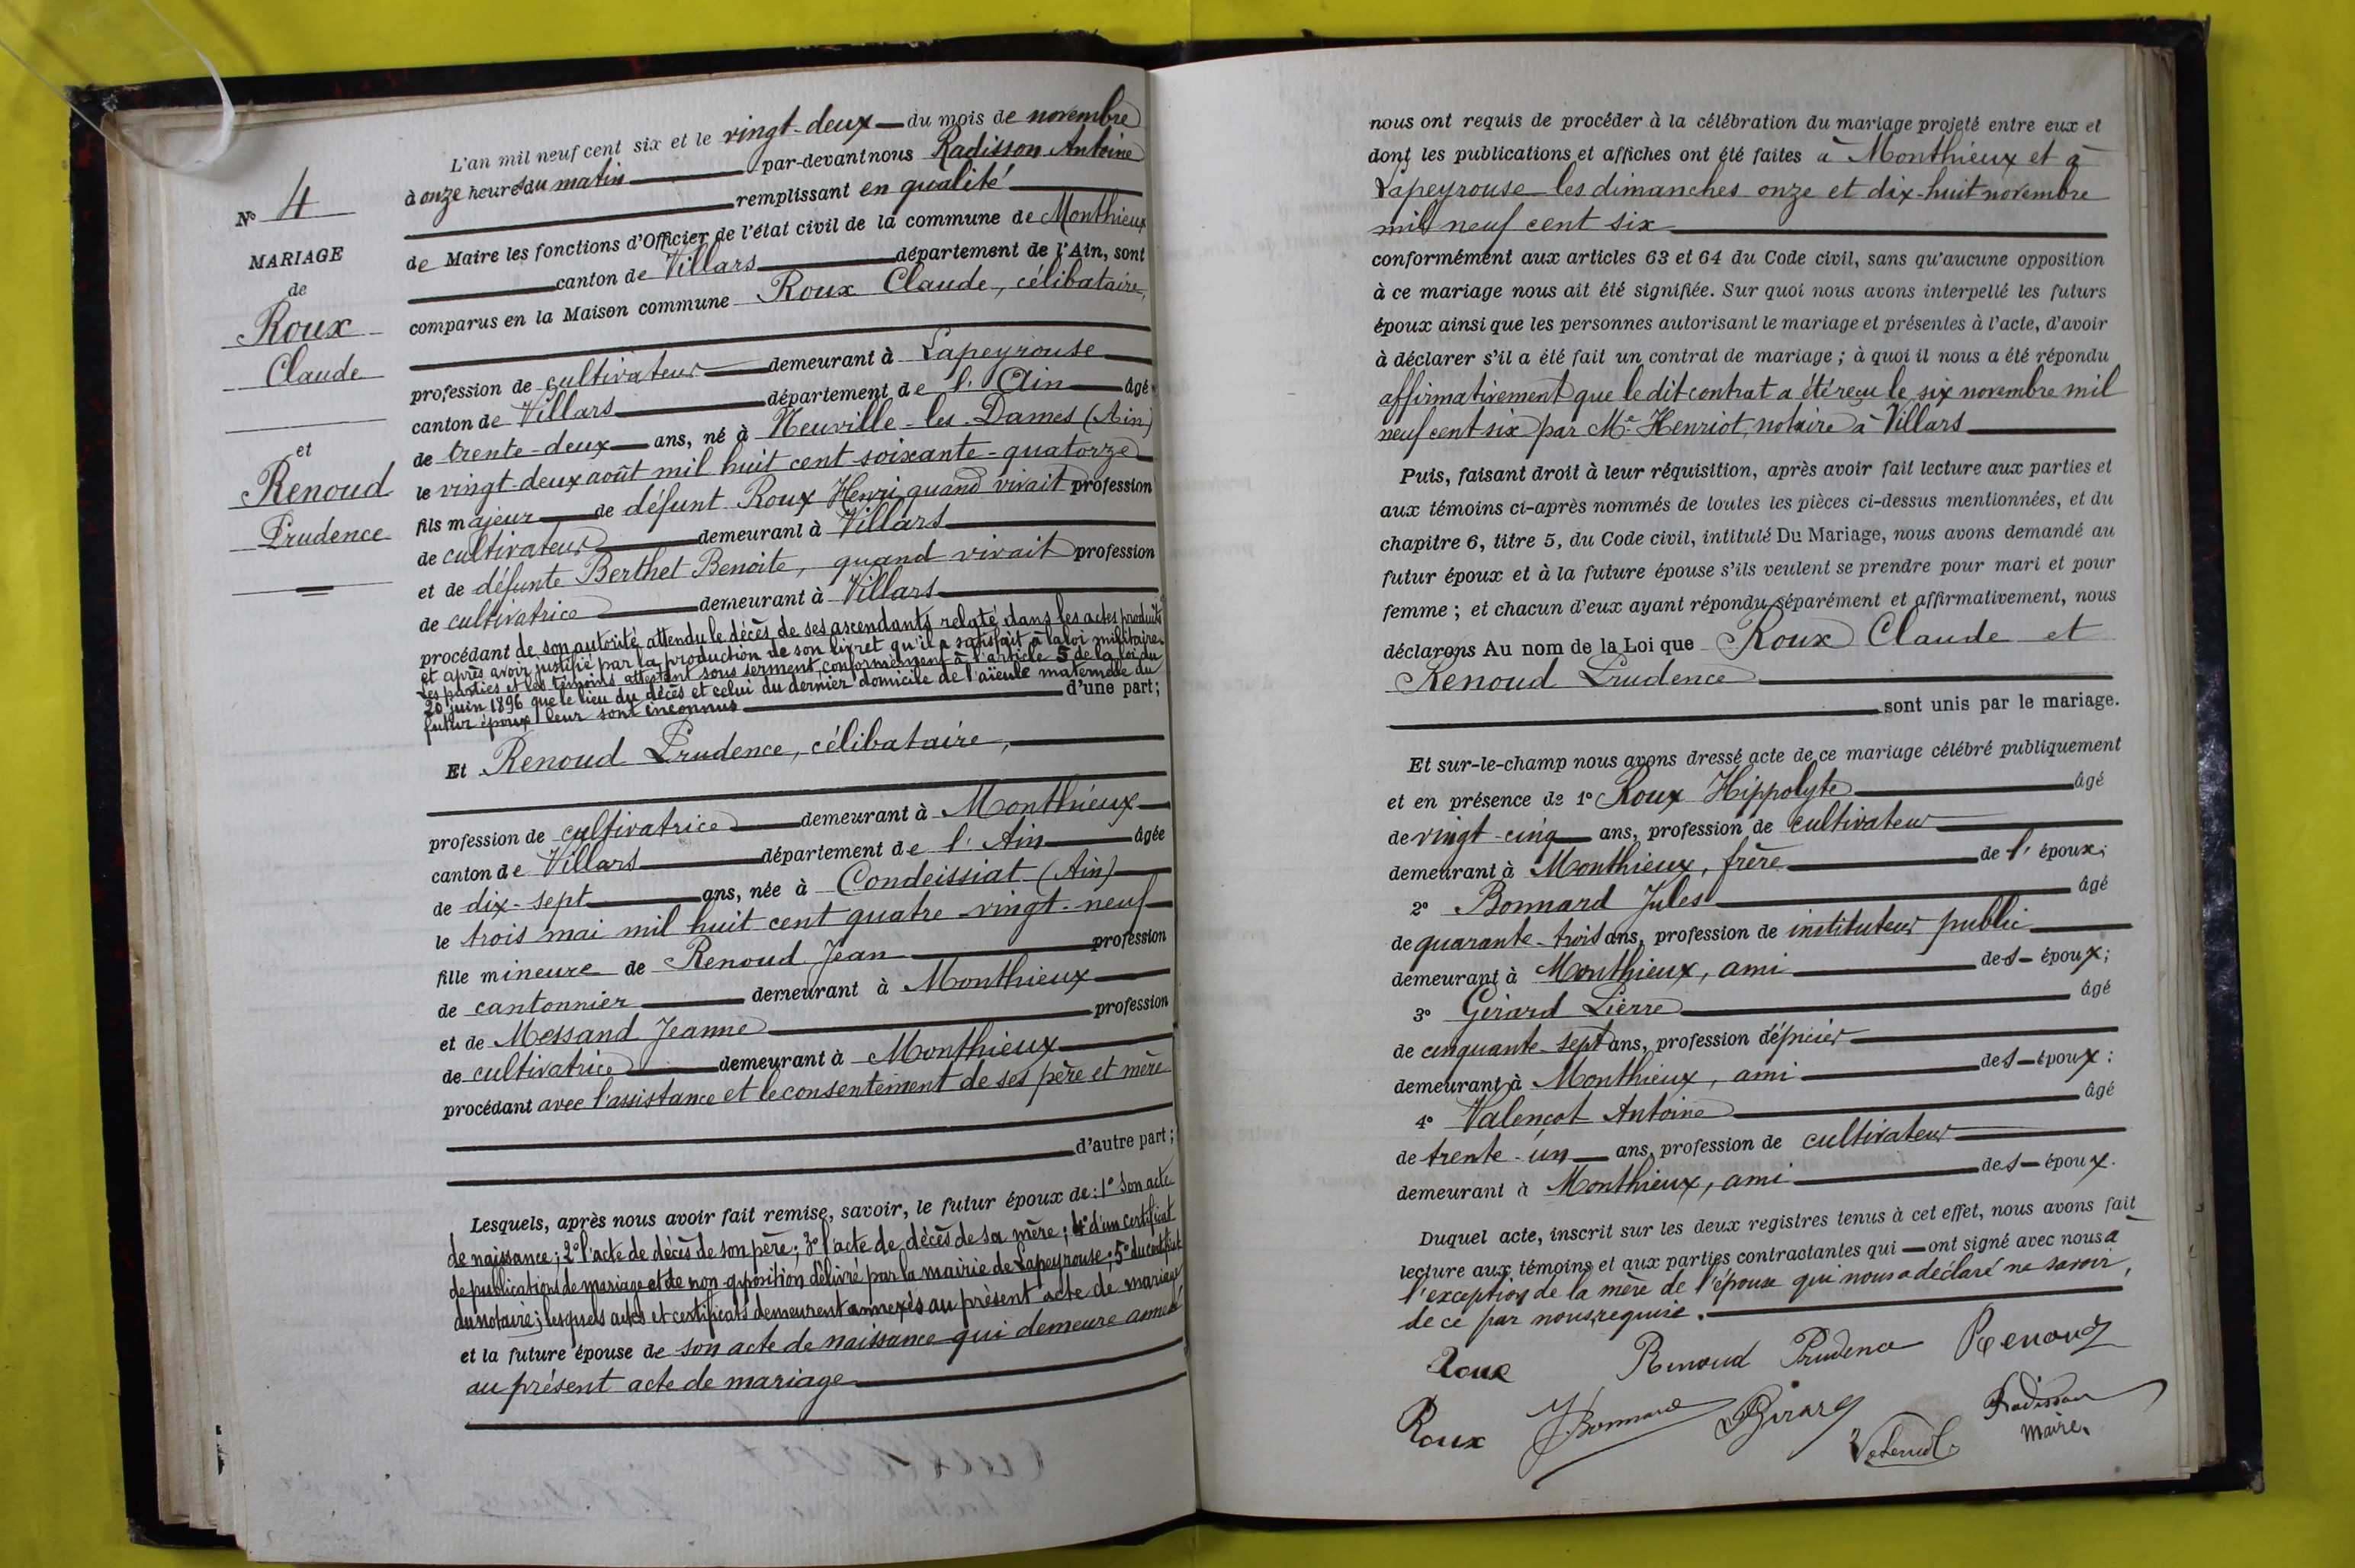 N° 4
MARIAGE
de
Roux
Claude
et
Renoud
Prudence
L'an mil neuf cent six et le vingt-deux du mois de novembre
à onze heures du matin par-devant nous Radisson Antoine
remplissant en qualité
de Maire les fonctions d'Officier de l'état civil de la commune de Monthieux
canton de Villars département de l'Ain, sont
comparus en la Maison commune Roux Claude, célibataire,
profession de cultivateur demeurant à Lapeyrouse
canton de Villars département de l'Ain âgé
de trente-deux ans, né à Neuville-les-Dames (Ain)
le vingt-deux août mil huit cent soixante-quatorze
fils majeur de défunt Roux Henri, quand vivait profession
de cultivateur demeurant à Villars
et de défunte Berthet Benoite, quand vivait profession
de cultivatrice demeurant à Villars
procédant de son autorité attendu le décès de ses ascendants relaté dans les actes produits
et après avoir justifié par la production de son livret qu'il a satisfait à la loi militaire.
Les parties et les témoins attestent sous serment, conformément à l'article 5 de la loi du
20 juin 1896 que le lieu du décès et celui du dernier domicile de l'aïeule maternelle du
futur époux leur sont inconnus d'une part;
Et Renoud Prudence, célibataire,
profession de cultivatrice demeurant à Monthieux
canton de Villars département de l'Ain âgée
de dix-sept ans, née à Condeissiat (Ain)
le trois mai mil huit cent quatre-vingt-neuf
fille mineure de Renoud Jean profession
de cantonnier demeurant à Monthieux
et de Messand Jeanne profession
de cultivatrice demeurant à Monthieux
procédant avec l'assistance et le consentement de ses père et mère
d'autre part;
Lesquels, après nous avoir fait remise, savoir, le futur époux de: 1° Son acte
de naissance; 2° l'acte de décès de son père; 3° l'acte de décès de sa mère; 4° d'un certificat
de publications de mariage et de non-opposition délivré par la mairie de Lapeyrouse; 5° du certificat
du notaire; lesquels actes et certificats demeurent annexés au présent acte de mariage
et la future épouse de son acte de naissance qui demeure annexé
au présent acte de mariage
nous ont requis de procéder à la célébration du mariage projeté entre eux et
dont les publications et affiches ont été faites à Monthieux et à
Lapeyrouse les dimanches onze et dix-huit novembre
mil neuf cent six
conformément aux articles 63 et 64 du Code civil, sans qu'aucune opposition
à ce mariage nous ait été signifiée. Sur quoi nous avons interpellé les futurs
époux ainsi que les personnes autorisant le mariage et présentes à l'acte, d'avoir
à déclarer s'il a été fait un contrat de mariage; à quoi il nous a été répondu
affirmativement que le dit contrat a été reçu le six novembre mil
neuf cent six par Me Henriot, notaire à Villars
Puis, faisant droit à leur réquisition, après avoir fait lecture aux parties et
aux témoins ci-après nommés de toutes les pièces ci-dessus mentionnées, et du
chapitre 6, titre 5, du Code civil, intitulé Du Mariage, nous avons demandé au
futur époux et à la future épouse s'ils veulent se prendre pour mari et pour
femme; et chacun d'eux ayant répondu séparément et affirmativement, nous
déclarons Au nom de la Loi que Roux Claude et
Renoud Prudence
sont unis par le mariage.
Et sur-le-champ nous avons dressé acte de ce mariage célébré publiquement
et en présence de 1° Roux Hippolyte âgé
de vingt-cinq ans, profession de cultivateur
demeurant à Monthieux, frère de l'époux;
2° Bonnard Jules âgé
de quarante-trois ans, profession de instituteur public
demeurant à Monthieux, ami des époux;
3° Girard Pierre âgé
de cinquante-sept ans, profession d'épicier
demeurant à Monthieux, ami des époux;
4° Valençot Antoine âgé
de trente-un ans, profession de cultivateur
demeurant à Monthieux, ami des époux.
Duquel acte, inscrit sur les deux registres tenus à cet effet, nous avons fait
lecture aux témoins et aux parties contractantes qui ont signé avec nous à
l'exception de la mère de l'épouse qui nous a déclaré ne savoir,
de ce par nous requise.
Roux Renoud Prudence Renoud
Roux JBonnard Girard Radisson
maire.